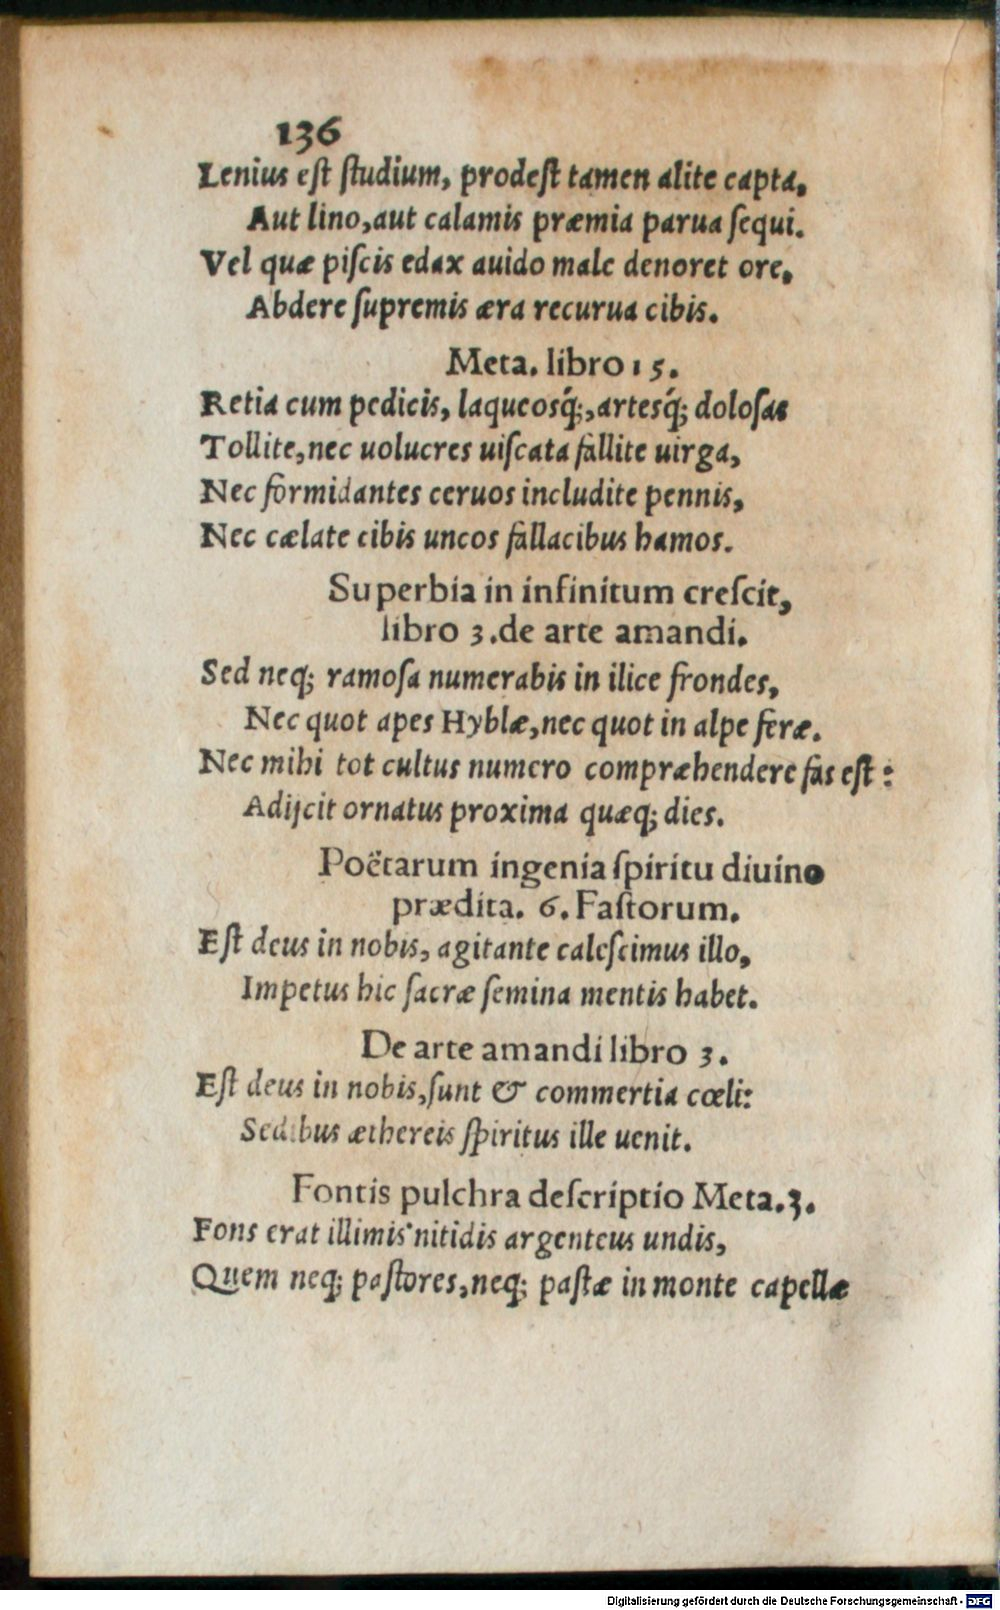 136
Lenius est studium, prodest tamen alite capta,
Aut lino,aut calamis præmia parua sequi.
Vel quæ piscis edax auido male denoret ore,
Abdere supremis æra recurua cibis.
Meta. libro 15.
Retia cum pedicis, laqueosq́;,artesq́; dolosas
Tollite,nec uolucres uiscata fallite uirga,
Nec formidantes ceruos includite pennis,
Nec cælate cibis uncos fallacibus hamos.
Superbia in infinitum crescit,
libro 3.de arte amandi.
Sed neq; ramosa numerabis in ilice frondes,
Nec quot apes Hyblæ,nec quot in alpe feræ.
Nec mihi tot cultus numero compræhendere fas est :
Adijcit ornatus proxima quæq; dies.
Poëtarum ingenia spiritu diuino
prædita. 6. Fastorum.
Est deus in nobis, agitante calescimus illo,
Impetus hic sacræ semina mentis habet.
De arte amandi libro 3.
Est deus in nobis,sunt & commertia cœli:
Sedibus æthereis spiritus ille uenit.
Fontis pulchra descriptio Meta.3.
Fons erat illimis nitidis argenteus undis,
Quem neq; pastores,neq; pastæ in monte capellæ
Digitalisierung gefördert durch die Deutsche Forschungsgemeinschaft - DFG